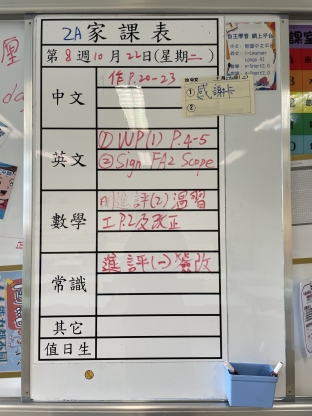 2A 家課表
第8週10月22日(星期二)
中文
作P.20-23
① 感謝卡
②
英文
① WP(1) P.4-5
② Sign FA2 Scope
數學
進評(2)溫習
工P.2及改正
常識
進評(一)簽改
其它
值日生
自主學習 網上平台